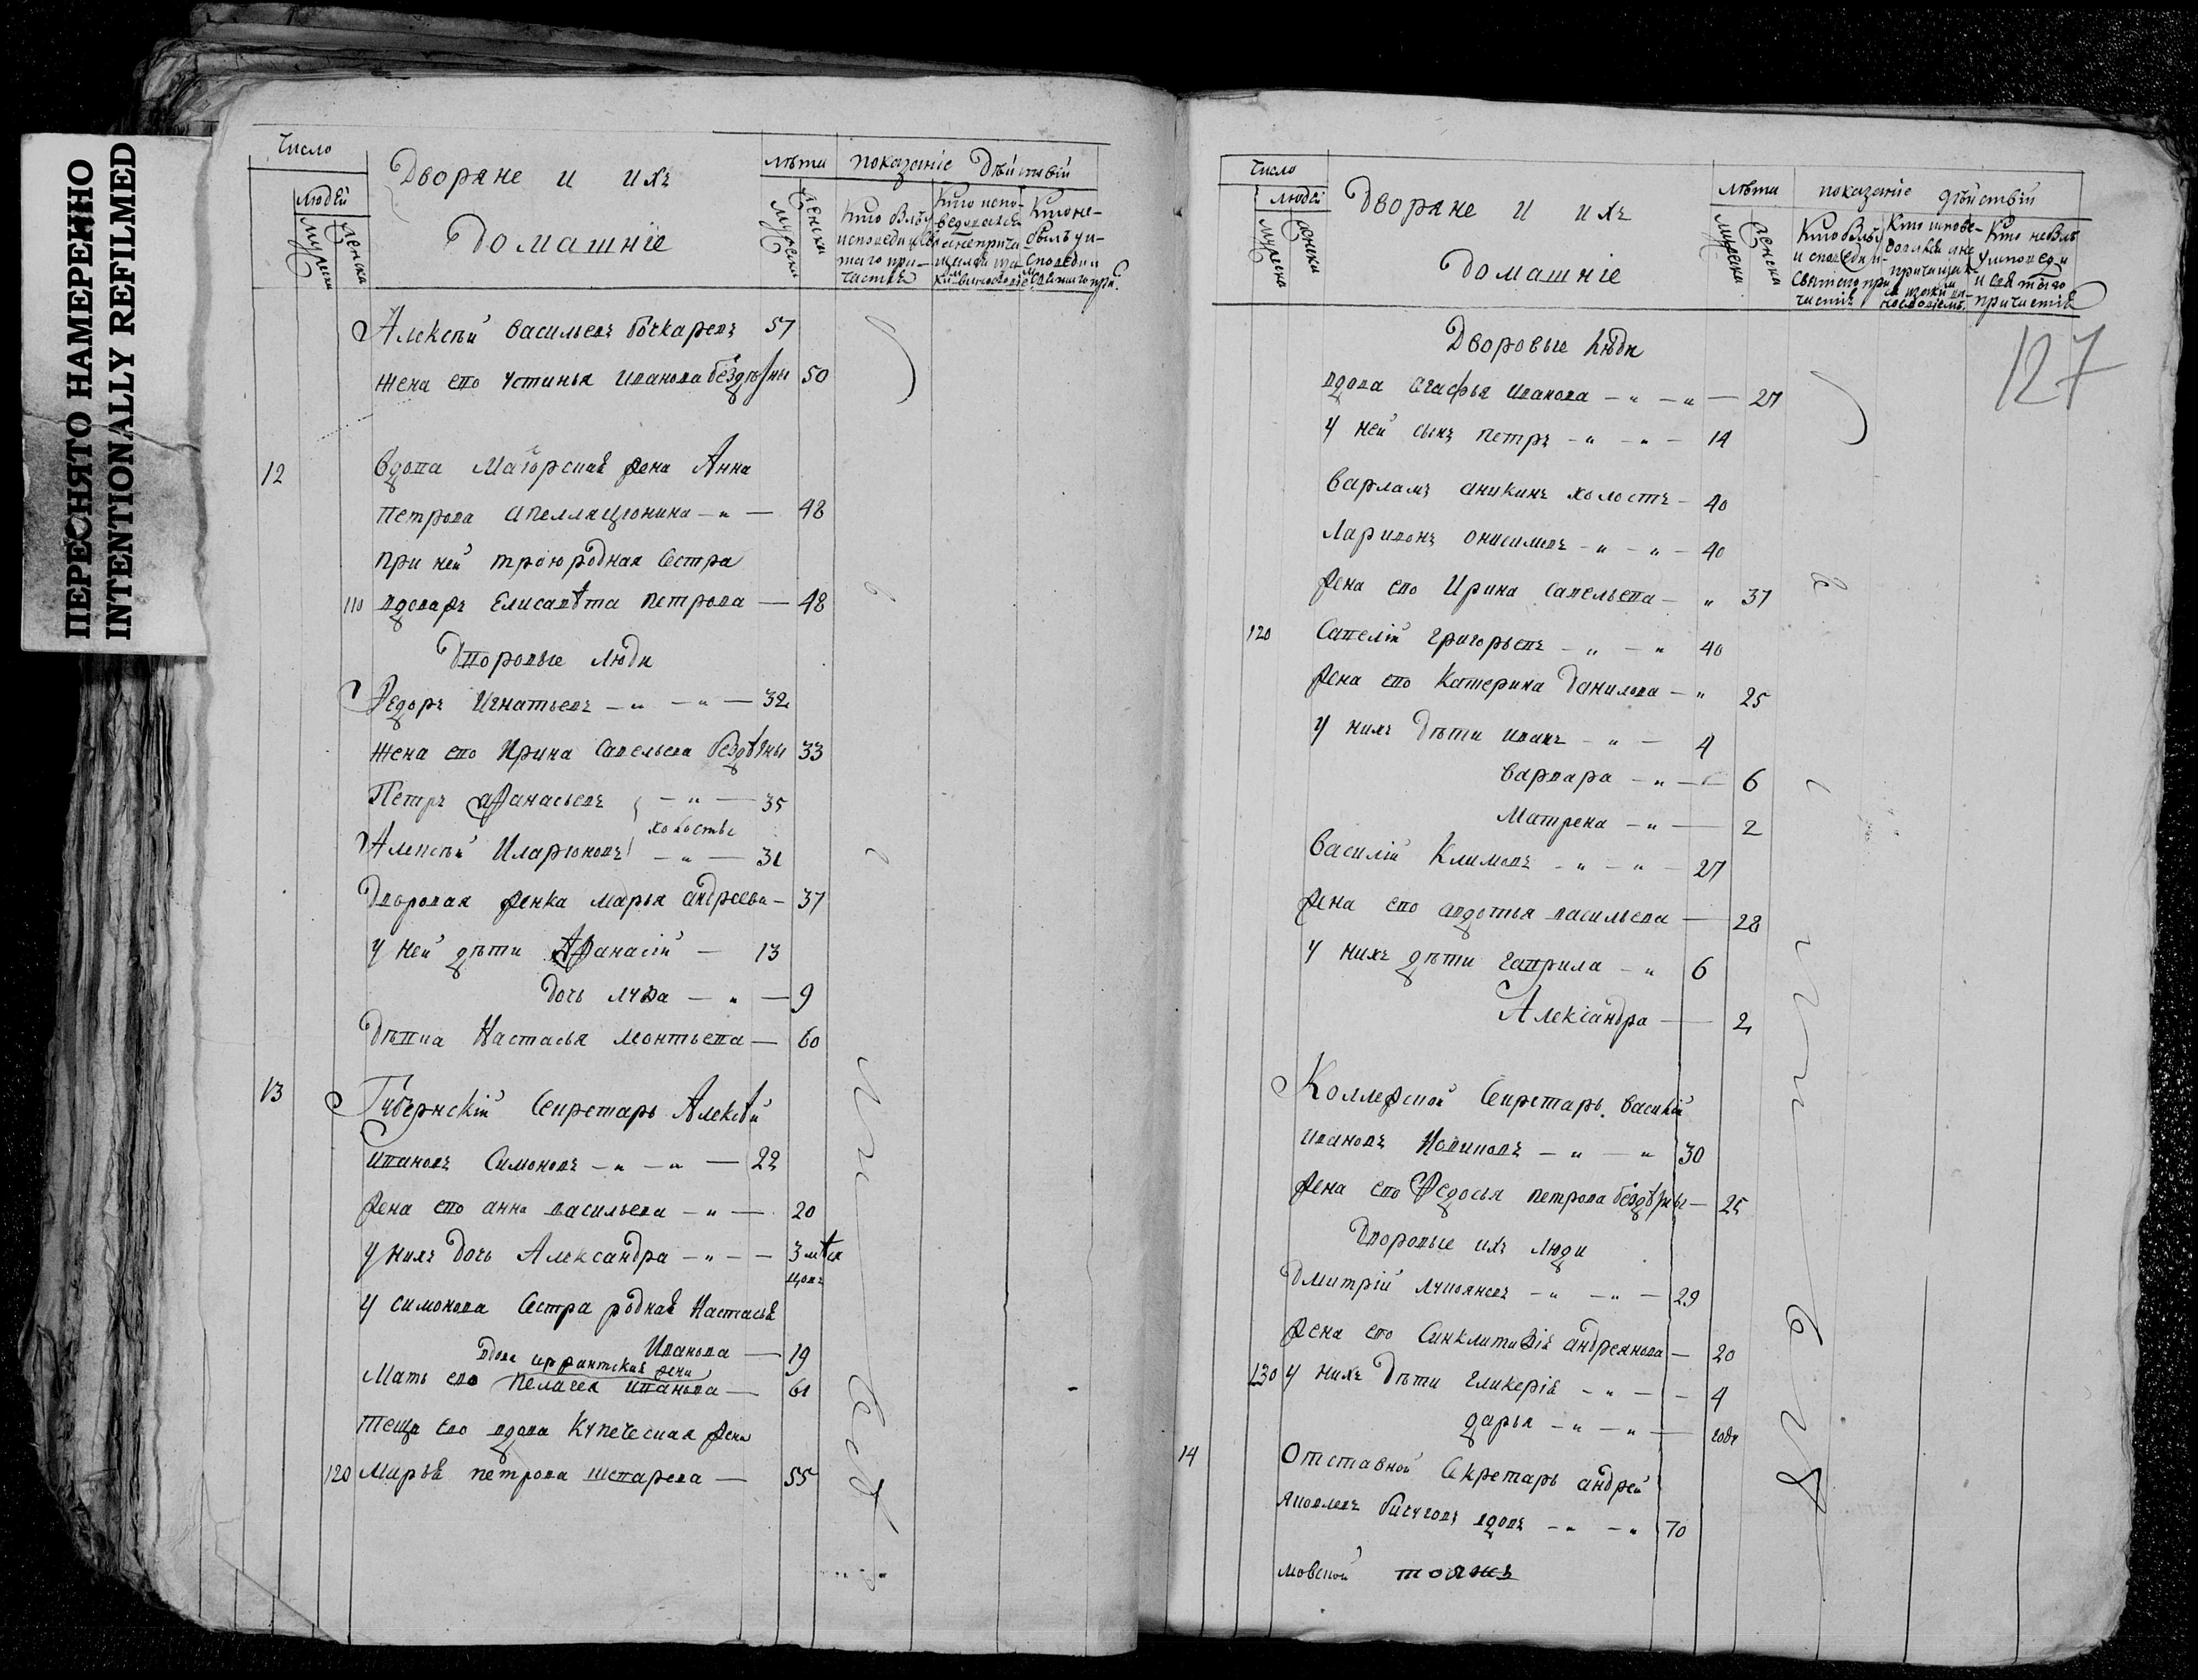 ПЕРЕСНЯТО НАМЕРЕННО
INTENTIONALLY REFILMED
Число
людей
мужеска
женска
Дворяне и ихъ
Домашніе
лѣта
мужески
женски
показаніе Дѣйствій
Кто былъ у
исповеди и Св
таго при-
частія
Кто испо-
ведолался
а не прича-
щался
Кто не-
былъ у и-
споведи и
Святаго при.
Алексѣй Васильевъ Бочкаревъ 57
жена его Устинья Иванова бездѣтны 50
12 Вдова Маіорская жена Анна
Петрова Апелляціонина — " — 48
При ней троюродная Сестра
110 вдоваяжъ Елисавѣта Петрова — 48
Дворовые люди
Ѳедоръ Игнатьевъ — " — " — 32
жена его Ирина Савельева бездѣтны 33
Петръ Афанасьевъ — " — 35
холосты
Алексѣй Иларіоновъ — " — 31
Дворовая женка Марья Андреева — 37
у ней дѣти Афанасій — 13
Дочь Луѳа — " — 9
Дѣвка Настасья Леонтьева — 60
13 Губернскій Секретарь Алексѣй
Ивановъ Симоновъ — " — " — 22
жена его Анна Васильева — " — 20
у нихъ Дочь Александра — " — — 3 мѣся
цовъ
у Симонова Сестра родная Настасья
Иванова — 19
вдова жена
Мать его Пелагея Иванова — 61
Теща его вдова Купеческая жена
120 Марья Петрова — 55
Число
людей
мужеска
женски
Дворяне и ихъ
Домашніе
лѣта
мужески
женска
показаніе дѣйствій
Кто былъ у
исповеди и
Святаго при
частія
Кто не былъ
у исповеди
и святаго
причастія
127
Дворовые люди
вдова Агафья Иванова — " — " — 27
У ней сынъ Петръ — " — " — 14
Варламъ Аникинъ холостъ — 40
Ларивонъ Онисимовъ — " — " — 40
жена его Ирина Савельева — " 37
120 Савелій Григорьевъ — " — " 40
жена его Катерина Данилова — " 25
у нихъ Дѣти Иванъ — " — 4
Варвара — " — 6
Матрена — " — 2
Василій Климовъ — " — " — 27
жена его Авдотья Васильева — 28
у нихъ дѣти Гаврила — " 6
Александра — 2
Коллежской Секретарь Василій
Ивановъ Новиковъ — " — " 30
жена его Ѳедосья Петрова бездѣтны — 25
Дворовые ихъ люди
Дмитрій Лукояновъ — " — " — 29
жена его Синклитикія Андреянова — 20
130 У нихъ Дѣти Гликерія — " — 4
дарья — " — " — годъ
14 Отставной Секретарь Андрей
Яковлевъ вдовъ — " — " 70